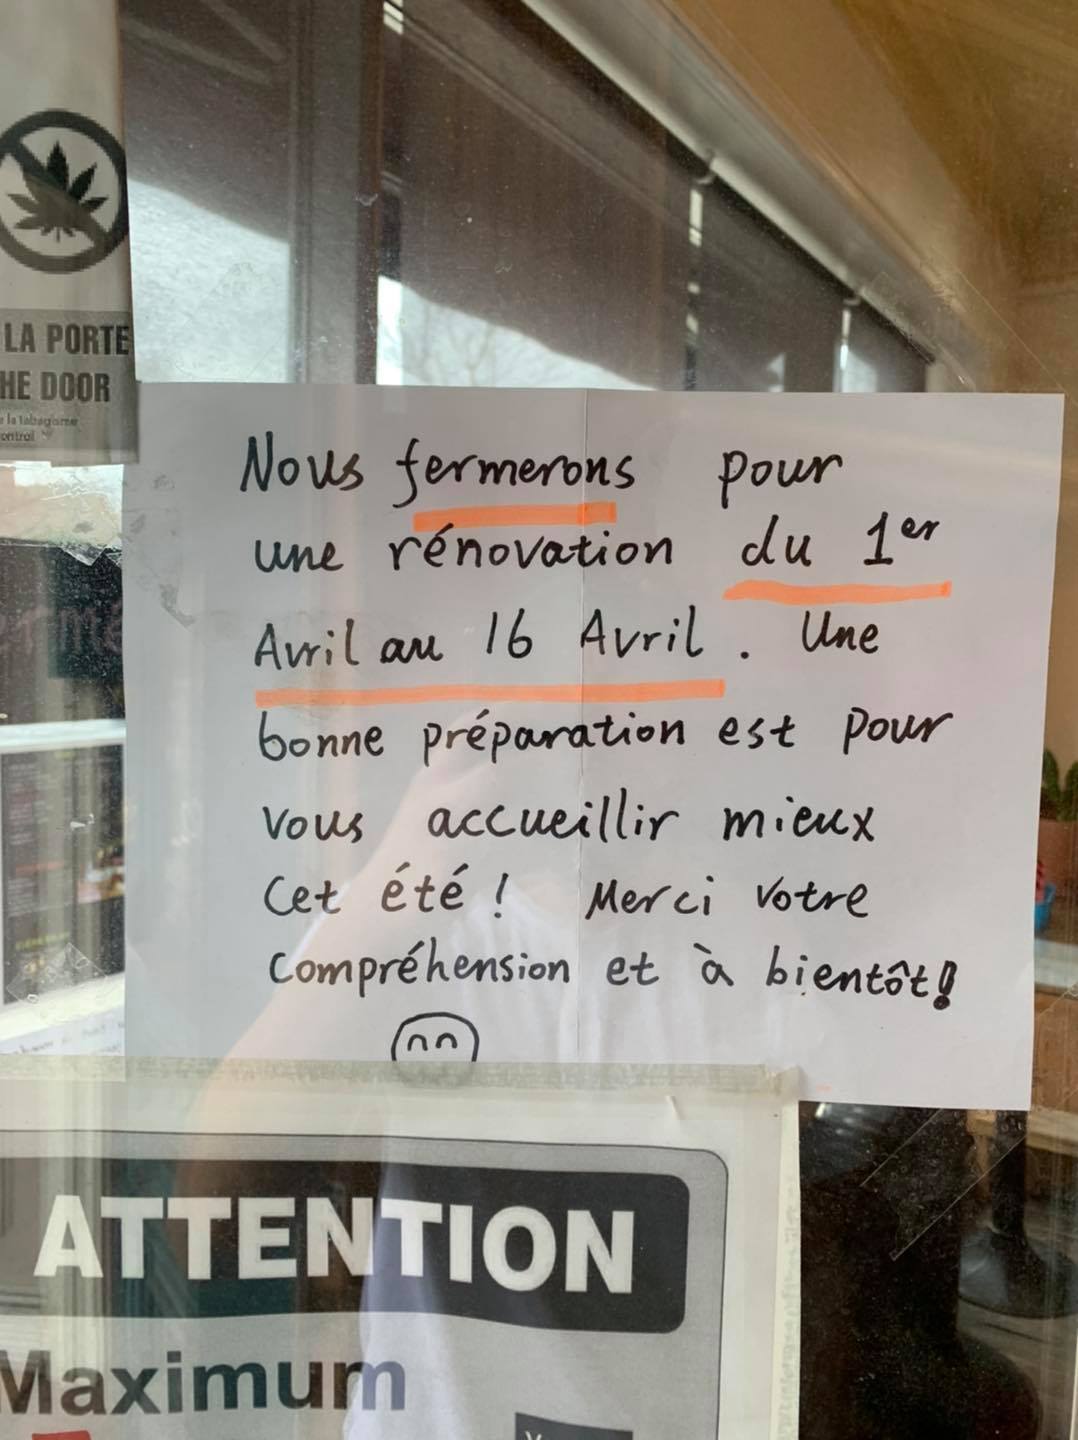 LA PORTE
HE DOOR
Nous fermerons pour
une rénovation du 1er
Avril au 16 Avril. Une
bonne préparation est pour
vous accueillir mieux
Cet été! Merci votre
compréhension et à bientôt!
ATTENTION
Maximum